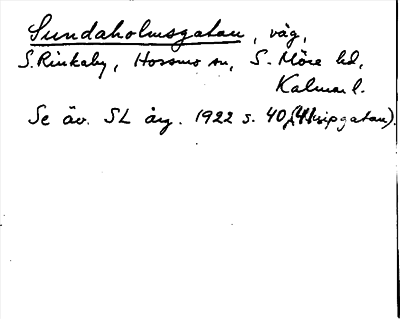 Sundaholmsgatan, väg,
S. Rinkaby, Hossmo sn, S. Möre hd,
Kalmar l.
Se äv. SL årg. 1922 s. 40